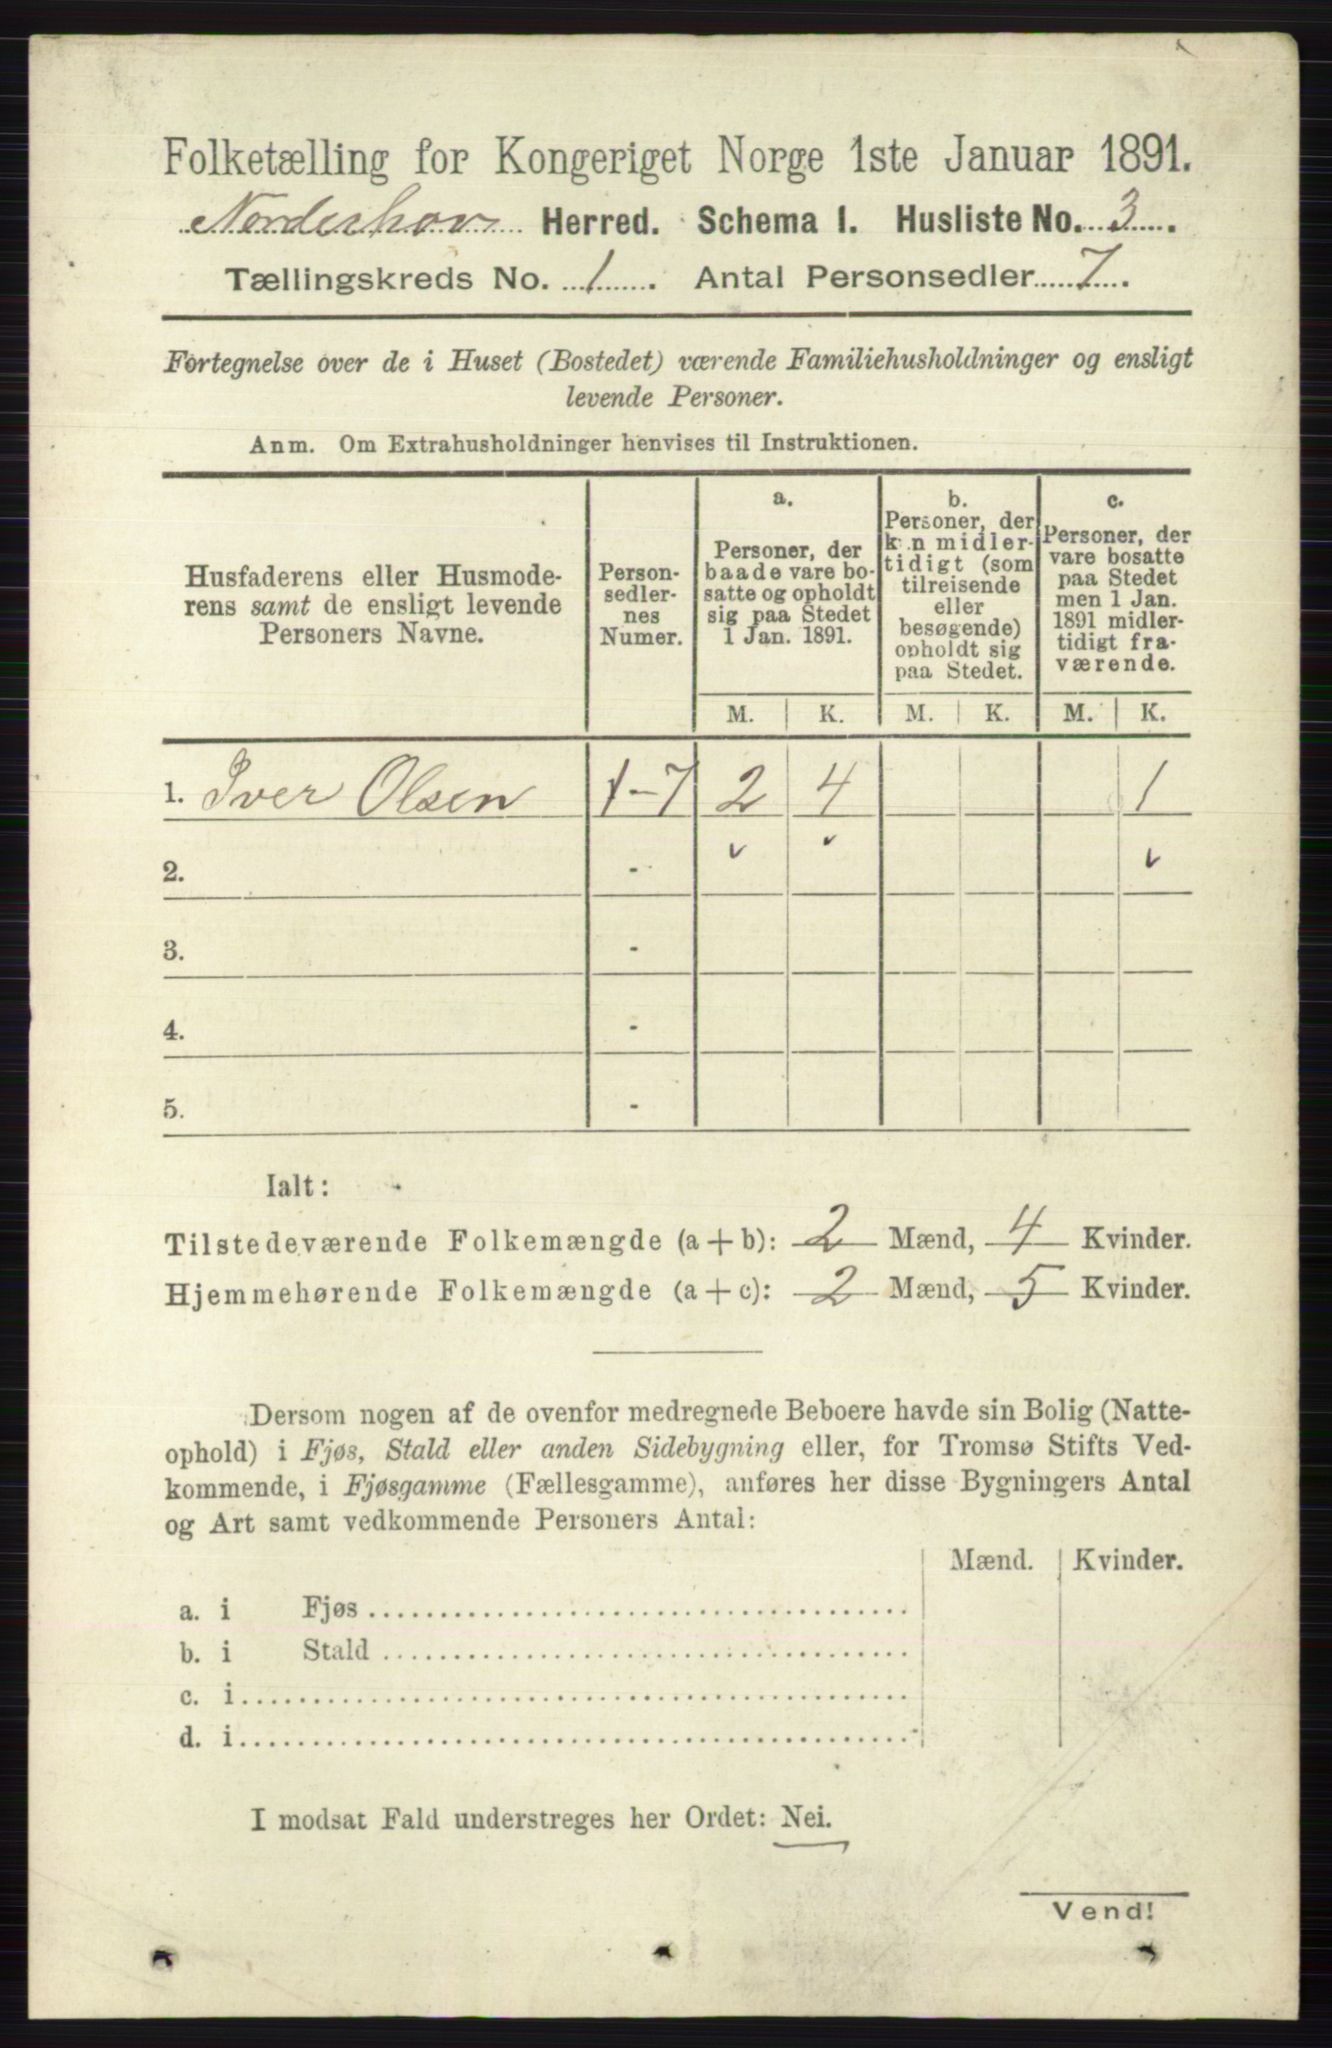 Folketælling for Kongeriget Norge 1ste Januar 1891.
Norderhov Herred. Schema I. Husliste No. 3.
Tællingskreds No. 1. Antal Personsedler 7.
Fortegnelse over de i Huset (Bostedet) værende Familiehusholdninger og ensligt
levende Personer.
Anm. Om Extrahusholdninger henvises til Instruktionen.
Husfaderens eller Husmode-
rens samt de ensligt levende
Personers Navne.
Person-
sedler-
nes
Numer.
a.
Personer, der
baade vare bo-
satte og opholdt
sig paa Stedet
1 Jan. 1891.
b.
Personer, der
kun midler-
tidigt (som
tilreisende
eller
besøgende)
opholdt sig
paa Stedet.
c.
Personer, der
vare bosatte
paa Stedet
men 1 Jan.
1891 midler-
tidigt fra-
værende.
M. K. M. K. M. K.
1. Iver Olsen 1-7 2 4 1
2. -
3. -
4. -
5. -
Ialt:
Tilstedeværende Folkemængde (a + b): 2 Mænd, 4 Kvinder.
Hjemmehørende Folkemængde (a + c): 2 Mænd, 5 Kvinder.
Dersom nogen af de ovenfor medregnede Beboere havde sin Bolig (Natte-
ophold) i Fjøs, Stald eller anden Sidebygning eller, for Tromsø Stifts Ved-
kommende, i Fjøsgamme (Fællesgamme), anføres her disse Bygningers Antal
og Art samt vedkommende Personers Antal:
Mænd. Kvinder.
a. i Fjøs
b. i Stald
c. i
d. i
I modsat Fald understreges her Ordet: Nei.
Vend!